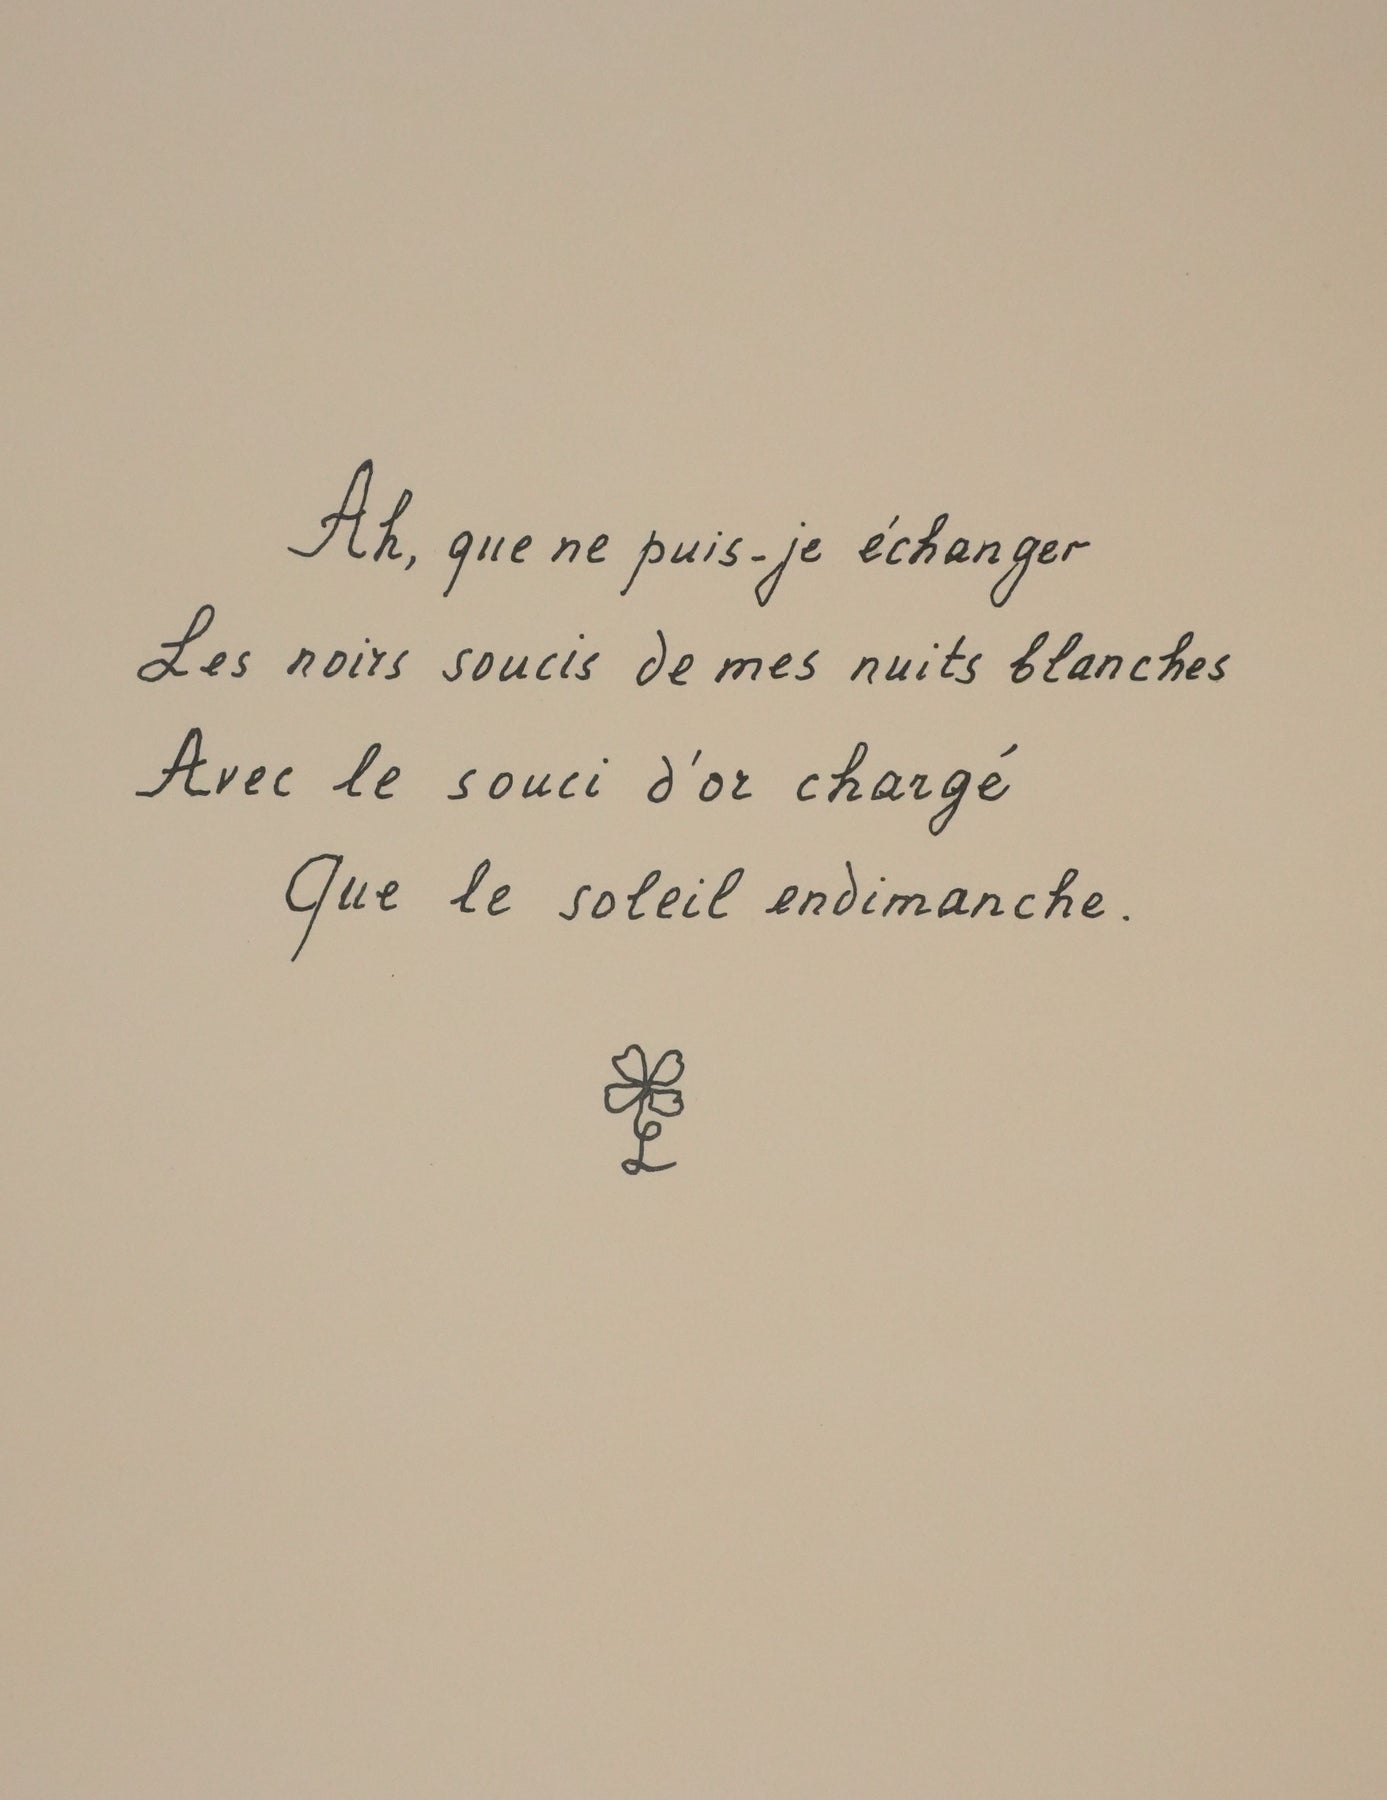 Ah, que ne puis-je échanger
Les noirs soucis de mes nuits blanches
Avec le souci d'or chargé
Que le soleil endimanche.
L